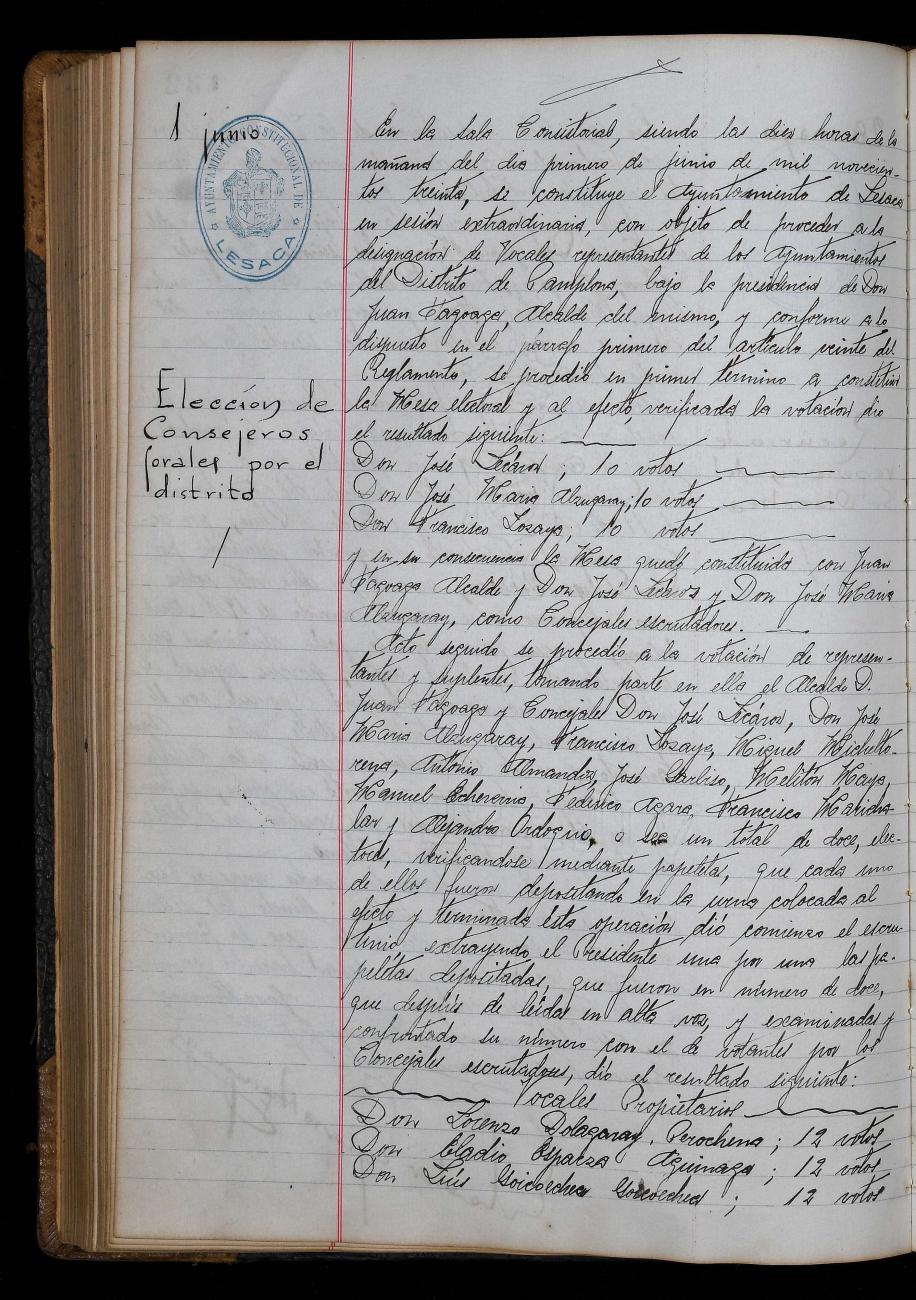 1 junio
AYUNTAMIENTO CONSTITUCIONAL DE
LESACA
Elección de
Consejeros
forales por el
distrito
En la Sala Consistorial, siendo las diez horas de la
mañana del dia primero de junio de mil novecien-
tos treinta, se constituye el Ayuntamiento de Lesaca
en sesión extraordinaria, con objeto de proceder a la
designación de Vocales representantes de los Ayuntamientos
del Distrito de Pamplona, bajo la presidencia de Don
Juan Tagoaga, Alcalde del mismo, y conforme a lo
dispuesto en el párrafo primero del artículo veinte del
Reglamento, se procedió en primer término a constituir
la Mesa electoral y al efecto, verificada la votación dio
el resultado siguiente:
Don José Lecároz; 10 votos
Don José Maria Alzugaray; 10 votos
Don Francisco Lozaya; 10 votos
y en su consecuencia la Mesa quedó constituida con Juan
Tagoaga Alcalde y Don José Lecároz y Don José Maria
Alzugaray, como Concejales escrutadores.
Acto seguido se procedió a la votación de represen-
tantes y suplentes, tomando parte en ella el Alcalde D.
Juan Tagoaga y Concejales Don José Lecároz, Don José
Maria Alzugaray, Francisco Lozaya, Miguel Michelto-
rena, Antonio Almandoz, José Garbiso, Melitón Maya,
Manuel Echeverria, Federico Agara, Francisco Maricha-
lar y Alejandro Ordoqui, o sea un total de doce, elec-
tores, verificandose mediante papeletas, que cada uno
de ellos fueron depositando en la urna colocada al
efecto y terminada ésta operación dió comienzo el escru-
tinio extrayendo el Presidente una por una las pa-
peletas depositadas, que fueron en número de doce,
que después de leídas en alta voz, y examinadas y
confrontado su número con el de votantes por los
Concejales escrutadores, dió el resultado siguiente:
Vocales Propietarios
Don Lorenzo Dolagaray Perochena; 12 votos
Don Eladio Esparza Aguinaga; 12 votos
Don Luis Goicoechea Goicoechea; 12 votos